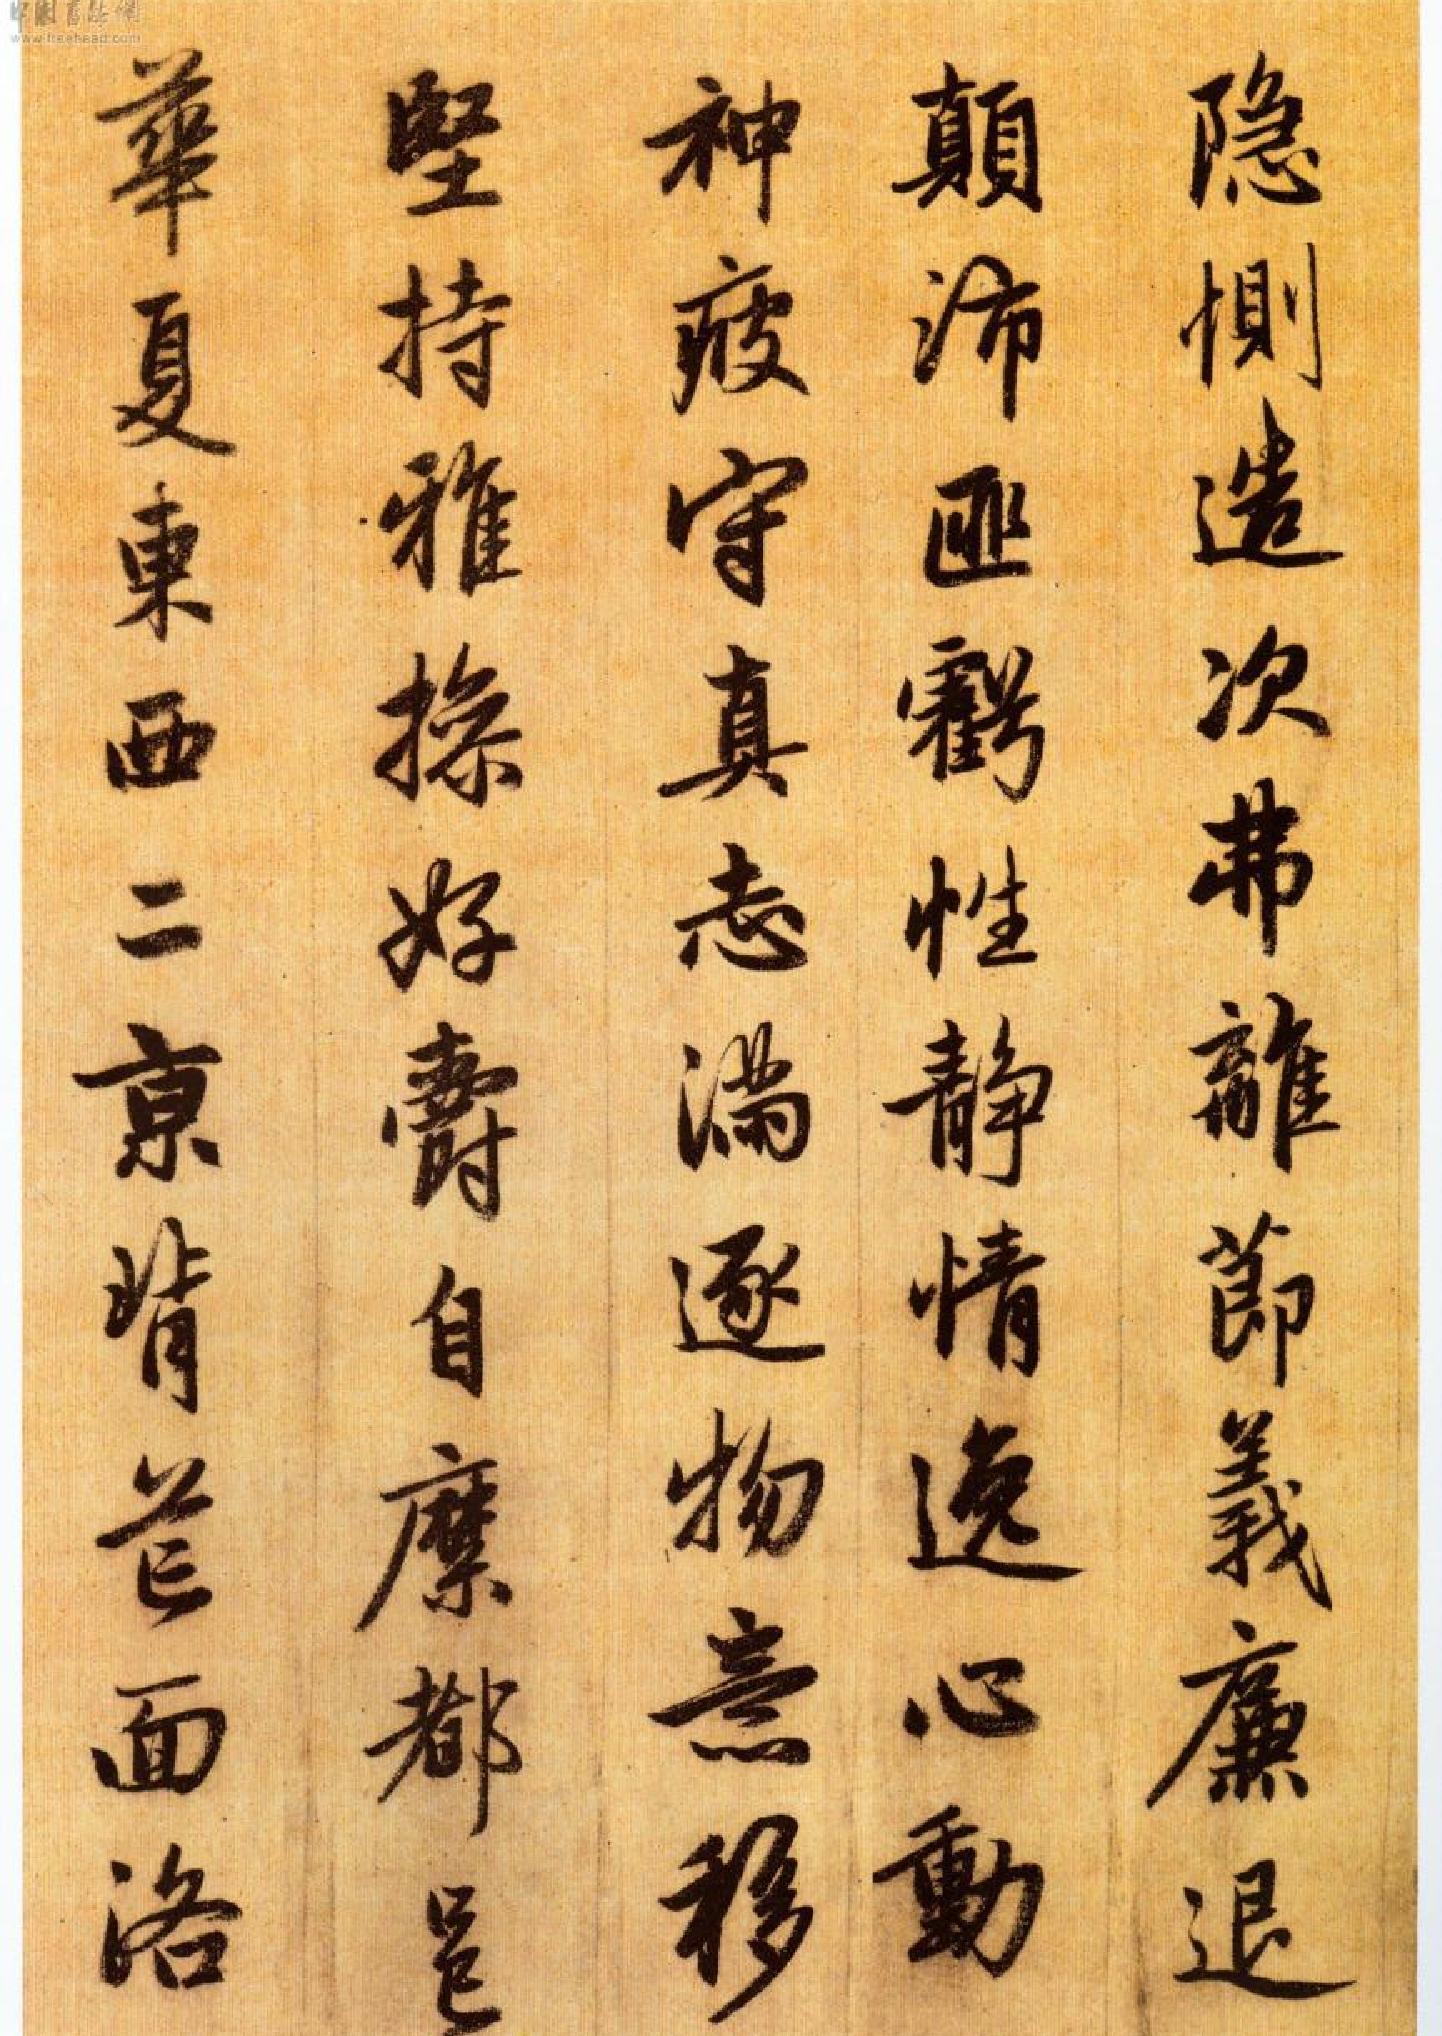 中國書法網
www.freehead.com
隐惻造次弗離節義廉退
顛沛匪虧性静情逸心動
神疲守真志滿逐物意移
堅持雅操好爵自縻都邑
華夏東西二京背芒面洛